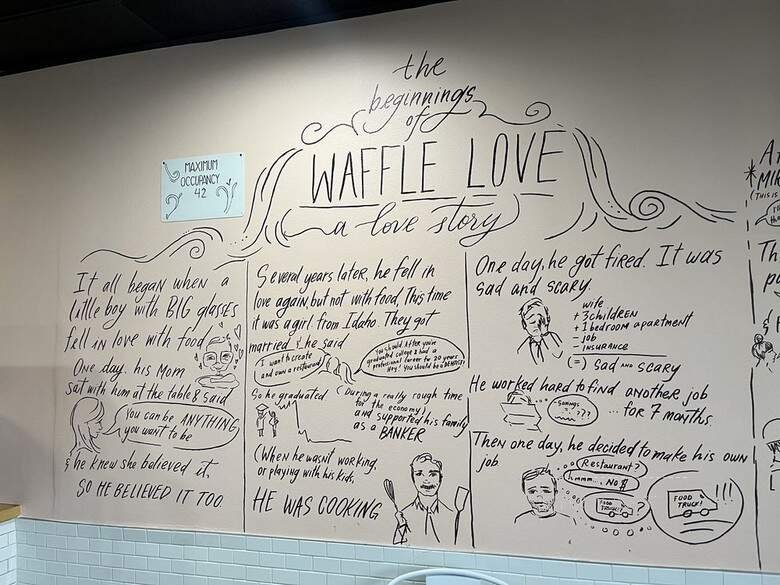 the
beginnings
of
WAFFLE LOVE
a love story
MAXIMUM
OCCUPANCY
42
It all began when a
little boy with BIG glasses
fell in love with food
One day, his Mom
sat with him at the table & said
You can be ANYTHING
you want to be
& he knew she believed it,
SO HE BELIEVED IT TOO.
Several years later, he fell in
love again, but not with food, This time
it was a girl from Idaho. They got
married & he said
I want to create
and own a restaurant
You should. After you've
graduated college & had a
professional career for 20 years
Hey! You should be a DENTIST
So he graduated
(During a really rough time
for the economy)
and supported his family
as a BANKER
(When he wasn't working,
or playing with his kids,
HE WAS COOKING
One day, he got fired. It was
sad and scary.
wife
+ 3 CHILDREN
+ 1 bedroom apartment
- job
- INSURANCE
(=) SAD AND SCARY
He worked hard to find another job
-SAVINGS
= ???
... for 7 months.
Then one day, he decided to make his own
job
Restaurant?
hmmm... No $
FOOD
TRUCK?
?
FOOD
TRUCK!
!!!
*MIK
(THIS IS
Th